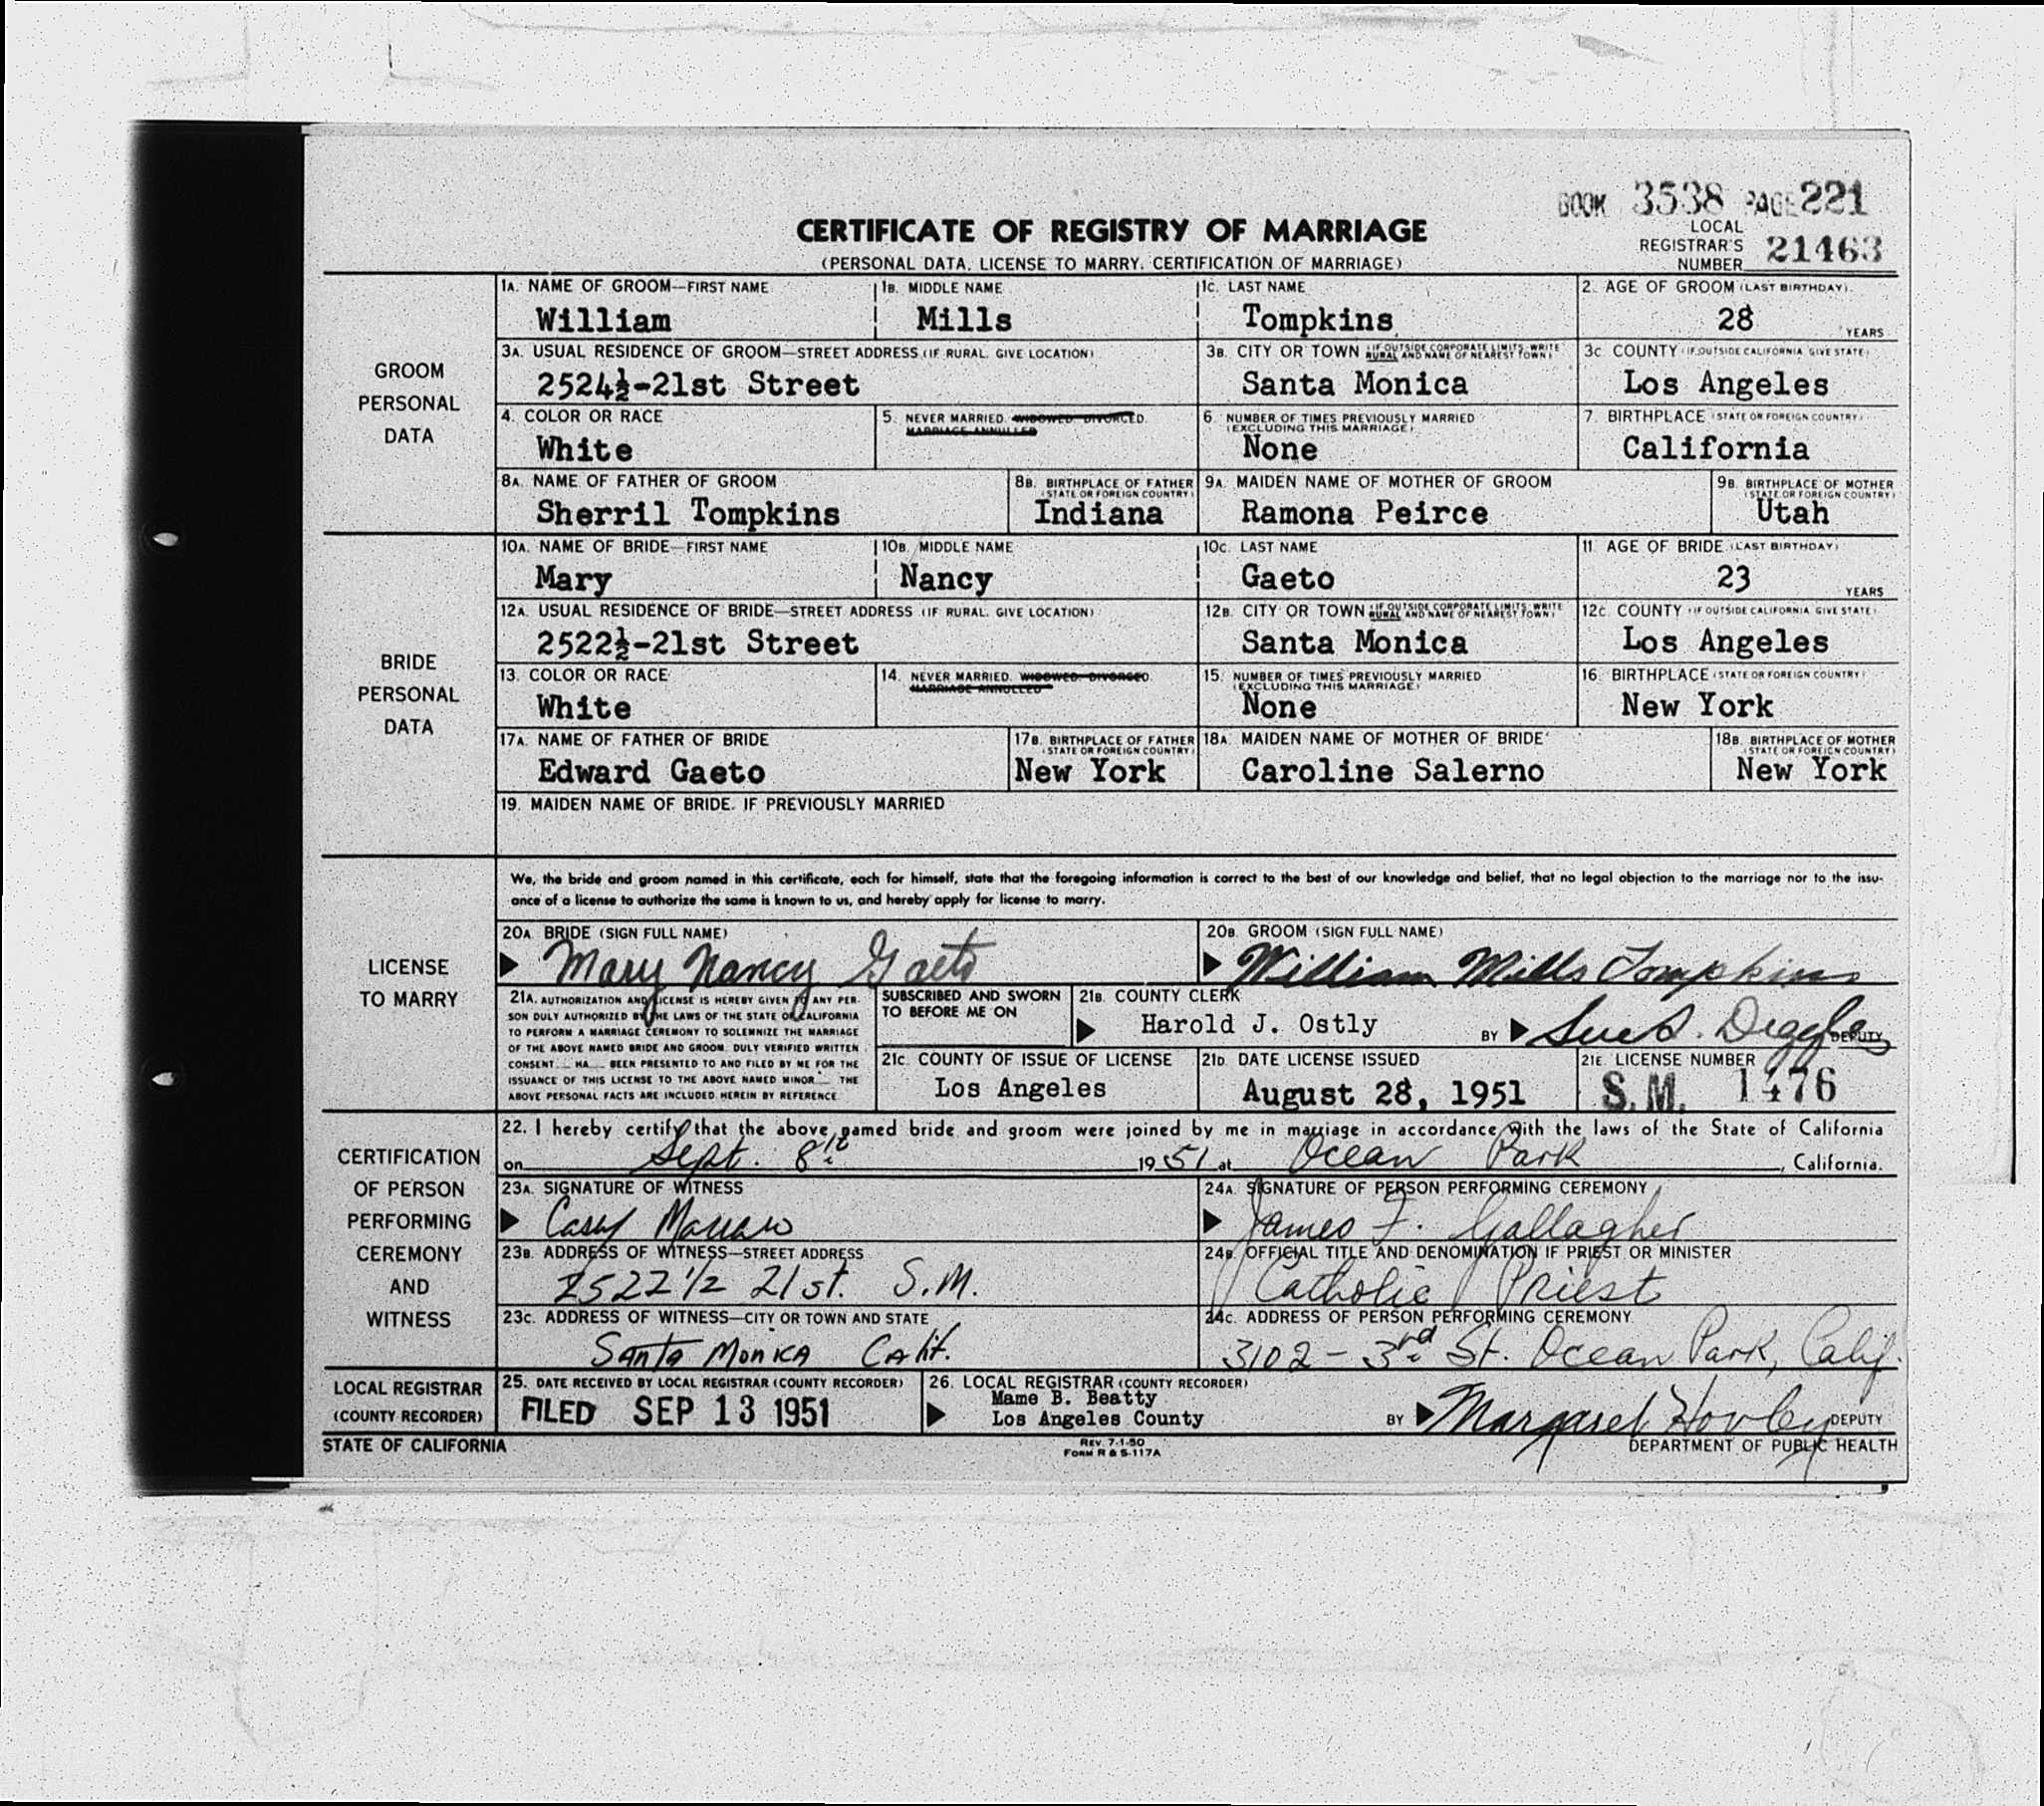 BOOK 3538 PAGE 221
CERTIFICATE OF REGISTRY OF MARRIAGE
(PERSONAL DATA, LICENSE TO MARRY, CERTIFICATION OF MARRIAGE)
LOCAL REGISTRAR'S NUMBER 21463
GROOM PERSONAL DATA
1A. NAME OF GROOM—FIRST NAME 1B. MIDDLE NAME 1C. LAST NAME 2. AGE OF GROOM (LAST BIRTHDAY)
William Mills Tompkins 28 YEARS
3A. USUAL RESIDENCE OF GROOM—STREET ADDRESS (IF RURAL, GIVE LOCATION) 3B. CITY OR TOWN (IF OUTSIDE CORPORATE LIMITS, WRITE RURAL AND NAME OF NEAREST TOWN) 3C. COUNTY (IF OUTSIDE CALIFORNIA, GIVE STATE)
2524½-21st Street Santa Monica Los Angeles
4. COLOR OR RACE 5. NEVER MARRIED, WIDOWED, DIVORCED, MARRIAGE ANNULLED 6. NUMBER OF TIMES PREVIOUSLY MARRIED (EXCLUDING THIS MARRIAGE) 7. BIRTHPLACE (STATE OR FOREIGN COUNTRY)
White None California
8A. NAME OF FATHER OF GROOM 8B. BIRTHPLACE OF FATHER (STATE OR FOREIGN COUNTRY) 9A. MAIDEN NAME OF MOTHER OF GROOM 9B. BIRTHPLACE OF MOTHER (STATE OR FOREIGN COUNTRY)
Sherril Tompkins Indiana Ramona Peirce Utah
BRIDE PERSONAL DATA
10A. NAME OF BRIDE—FIRST NAME 10B. MIDDLE NAME 10C. LAST NAME 11. AGE OF BRIDE (LAST BIRTHDAY)
Mary Nancy Gaeto 23 YEARS
12A. USUAL RESIDENCE OF BRIDE—STREET ADDRESS (IF RURAL, GIVE LOCATION) 12B. CITY OR TOWN (IF OUTSIDE CORPORATE LIMITS, WRITE RURAL AND NAME OF NEAREST TOWN) 12C. COUNTY (IF OUTSIDE CALIFORNIA, GIVE STATE)
2522½-21st Street Santa Monica Los Angeles
13. COLOR OR RACE 14. NEVER MARRIED, WIDOWED, DIVORCED, MARRIAGE ANNULLED 15. NUMBER OF TIMES PREVIOUSLY MARRIED (EXCLUDING THIS MARRIAGE) 16. BIRTHPLACE (STATE OR FOREIGN COUNTRY)
White None New York
17A. NAME OF FATHER OF BRIDE 17B. BIRTHPLACE OF FATHER (STATE OR FOREIGN COUNTRY) 18A. MAIDEN NAME OF MOTHER OF BRIDE 18B. BIRTHPLACE OF MOTHER (STATE OR FOREIGN COUNTRY)
Edward Gaeto New York Caroline Salerno New York
19. MAIDEN NAME OF BRIDE, IF PREVIOUSLY MARRIED
LICENSE TO MARRY
We, the bride and groom named in this certificate, each for himself, state that the foregoing information is correct to the best of our knowledge and belief, that no legal objection to the marriage nor to the issu-
ance of a license to authorize the same is known to us, and hereby apply for license to marry.
20A. BRIDE (SIGN FULL NAME) 20B. GROOM (SIGN FULL NAME)
Mary Nancy Gaeto William Mills Tompkins
21A. AUTHORIZATION AND LICENSE IS HEREBY GIVEN TO ANY PER-
SON DULY AUTHORIZED BY THE LAWS OF THE STATE OF CALIFORNIA
TO PERFORM A MARRIAGE CEREMONY TO SOLEMNIZE THE MARRIAGE
OF THE ABOVE NAMED BRIDE AND GROOM. DULY VERIFIED WRITTEN
CONSENT HA BEEN PRESENTED TO AND FILED BY ME FOR THE
ISSUANCE OF THIS LICENSE TO THE ABOVE NAMED MINOR THE
ABOVE PERSONAL FACTS ARE INCLUDED HEREIN BY REFERENCE.
SUBSCRIBED AND SWORN TO BEFORE ME ON
21B. COUNTY CLERK
Harold J. Ostly BY DEPUTY
21C. COUNTY OF ISSUE OF LICENSE 21D. DATE LICENSE ISSUED 21E. LICENSE NUMBER
Los Angeles August 28, 1951 S.M. 1476
CERTIFICATION OF PERSON PERFORMING CEREMONY AND WITNESS
22. I hereby certify that the above named bride and groom were joined by me in marriage in accordance with the laws of the State of California
on Sept. 8th 1951 at Ocean Park, California.
23A. SIGNATURE OF WITNESS 24A. SIGNATURE OF PERSON PERFORMING CEREMONY
Casey James F. Gallagher
23B. ADDRESS OF WITNESS—STREET ADDRESS 24B. OFFICIAL TITLE AND DENOMINATION IF PRIEST OR MINISTER
2522 1/2 21st. S.M. Catholic Priest
23C. ADDRESS OF WITNESS—CITY OR TOWN AND STATE 24C. ADDRESS OF PERSON PERFORMING CEREMONY
Santa Monica Calif. 3102 - 3rd St. Ocean Park, Calif.
LOCAL REGISTRAR (COUNTY RECORDER)
25. DATE RECEIVED BY LOCAL REGISTRAR (COUNTY RECORDER) 26. LOCAL REGISTRAR (COUNTY RECORDER)
FILED SEP 13 1951 Mame B. Beatty
Los Angeles County BY Margaret DEPUTY
STATE OF CALIFORNIA REV. 7-1-50 DEPARTMENT OF PUBLIC HEALTH
FORM R & S-117A